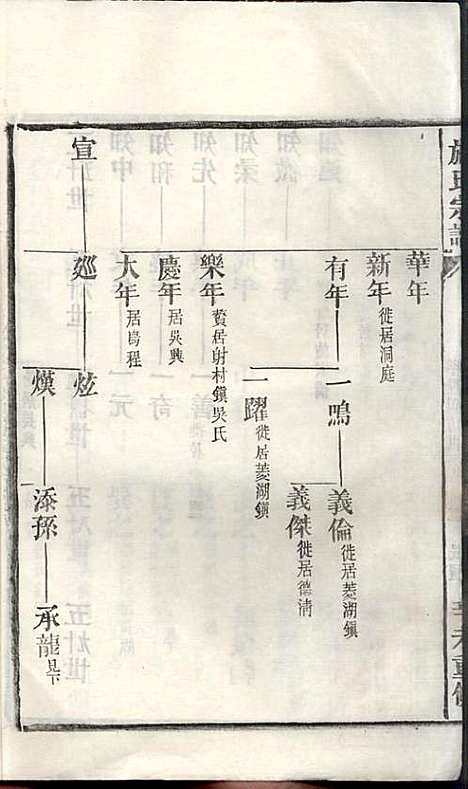 氏宗譜
華年
新年 徙居洞庭
有年 一鳴 義倫 徙居菱湖鎭
義傑 徙居德淸
一躍 徙居菱湖鎭
樂年 贅居射村鎭吳氏
慶年 居吳興
大年 居烏程
宣 廵 炫
熯 添孫 承龍 見下